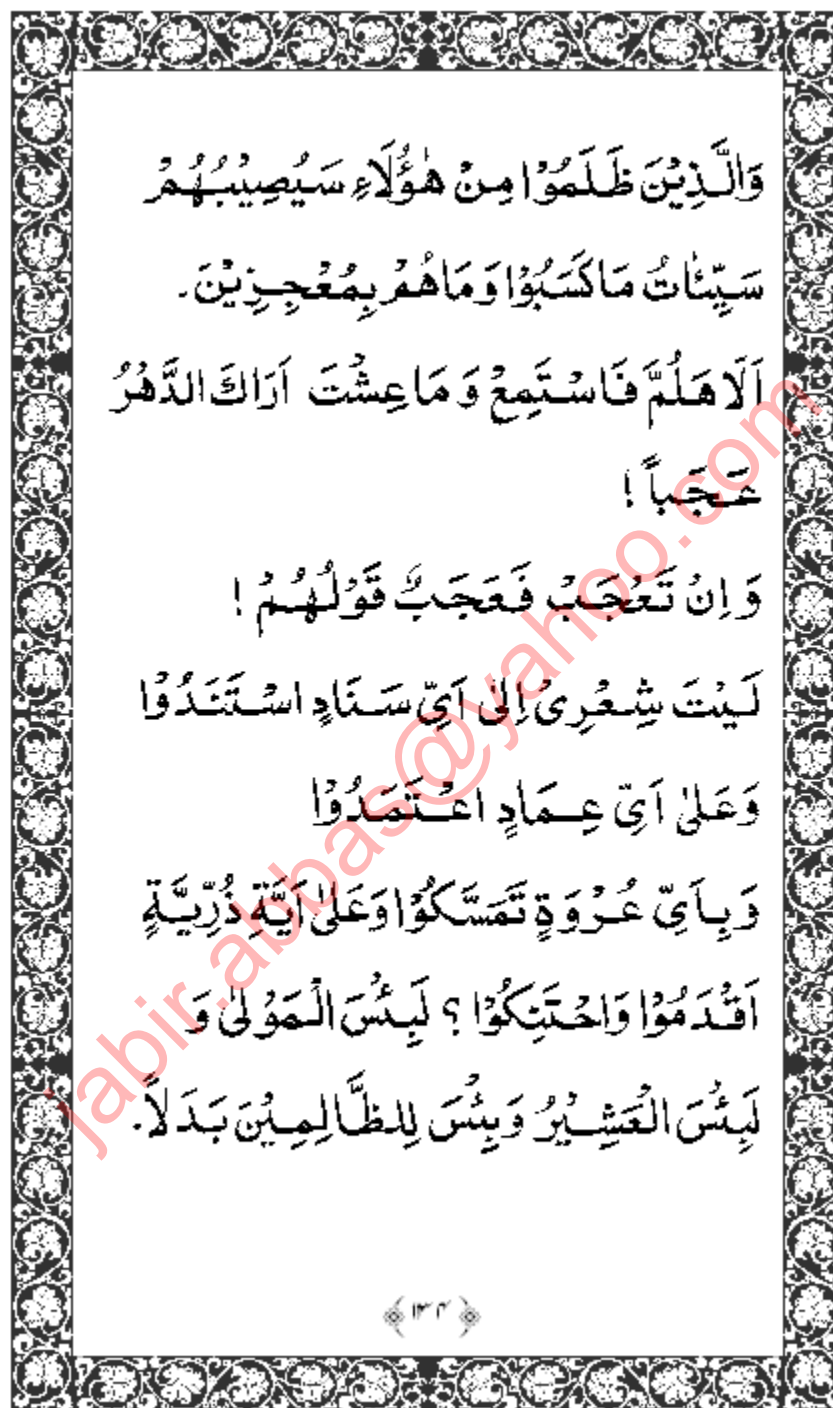 وَالَّذِيْنَ ظَلَمُوْا مِنْ هٰؤُلَاءِ سَيُصِيْبُهُمْ
سَيِّئٰاتُ مَاكَسَبُوْا وَمَاهُمْ بِمُعْجِزِيْنَ.
اَلَا هَلُمَّ فَاسْتَمِعْ وَ مَاعِشْتَ اَرَاكَ الدَّهْرُ
عَجَباً !
وَ اِنْ تَعْجَبْ فَعَجَبٌ قَوْلُهُمْ !
لَيْتَ شِعْرِىْ اِلٰى اَىِّ سَنَادٍ اسْتَنَدُوْا
وَعَلىٰ اَىِّ عِمَادٍ اعْتَمَدُوْا
وَبِاَىِّ عُرْوَةٍ تَمَسَّكُوْا وَعَلىٰ اَيَّةِ ذُرِّيَّةٍ
اَقْدَمُوْا وَاحْتَنِكُوْا ؟ لَبِئْسَ الْمَوْلىٰ وَ
لَبِئْسَ الْعَشِيْرُ وَبِئْسَ لِلظَّالِمِيْنَ بَدَلاً.
۱۳۴
jabir.abbas@yahoo.com